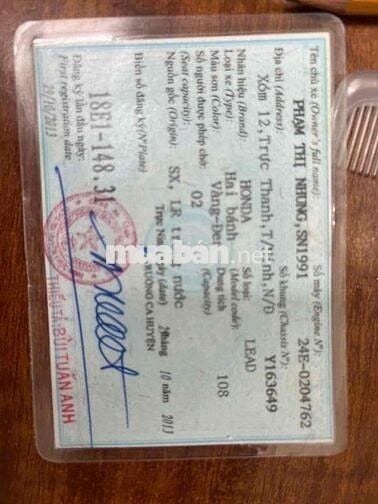 Tên chủ xe (Owner's full name): Số máy (Engine Nº):
PHẠM THỊ NHUNG,SN1991 24E-0204762
Địa chỉ (Address): Số khung (Chassis Nº)
Xóm 12,Trực Thanh,T/Ninh,N/Đ Y163649
Nhãn hiệu (Brand): HONDA Số loại: LEAD
(Model code):
Loại xe (Type): Hai bánh Dung tích 108
Màu sơn (Color): Vàng-Đen (Capacity)
Số người được phép chở: 02
(Seat capacity):
Nguồn gốc (Origin): SX, LR trong nước
Trực Ninh, ngày (date) 29 tháng 10 năm 2013
Biển số đăng ký(Nº Plate) TRƯỞNG CA HUYỆN
18E1-148.31
Đăng ký lần đầu ngày:
First registration date
29/10/2013
THIẾU TÁ: BÙI TUẤN ANH
muaban.net